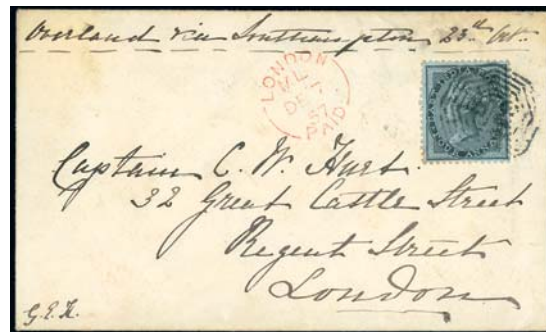 Overland via Southampton 23rd Oct.
LONDON
ML
DE
57
PAID
Captain C. W. Hurt.
32 Great Castle Street
Regent Street
London
G.E.H.